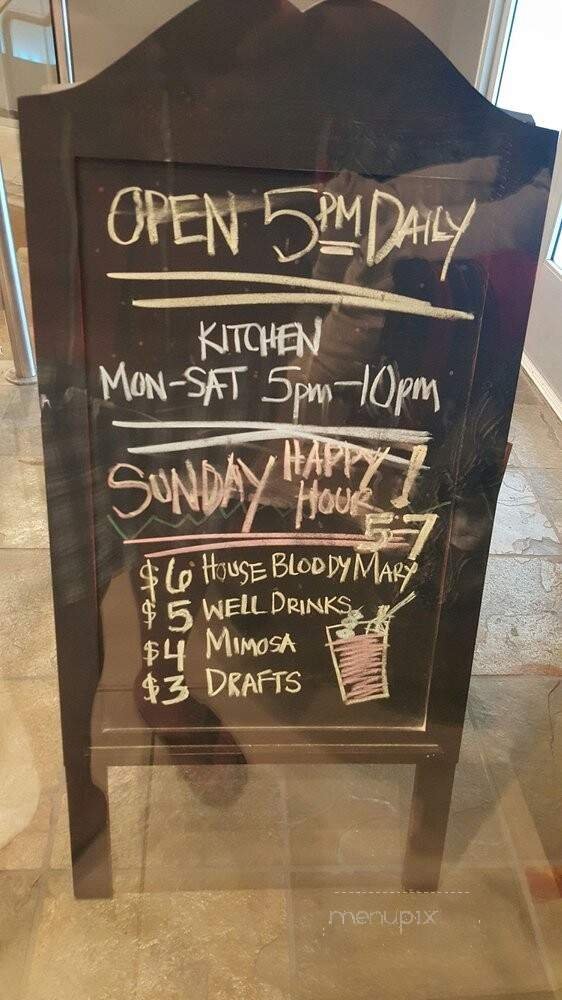 OPEN 5PM DAILY
KITCHEN
MON-SAT 5pm-10pm
SUNDAY HAPPY HOUR!
5-7
$6 HOUSE BLOODY MARY
$5 WELL DRINKS
$4 MIMOSA
$3 DRAFTS
menupix